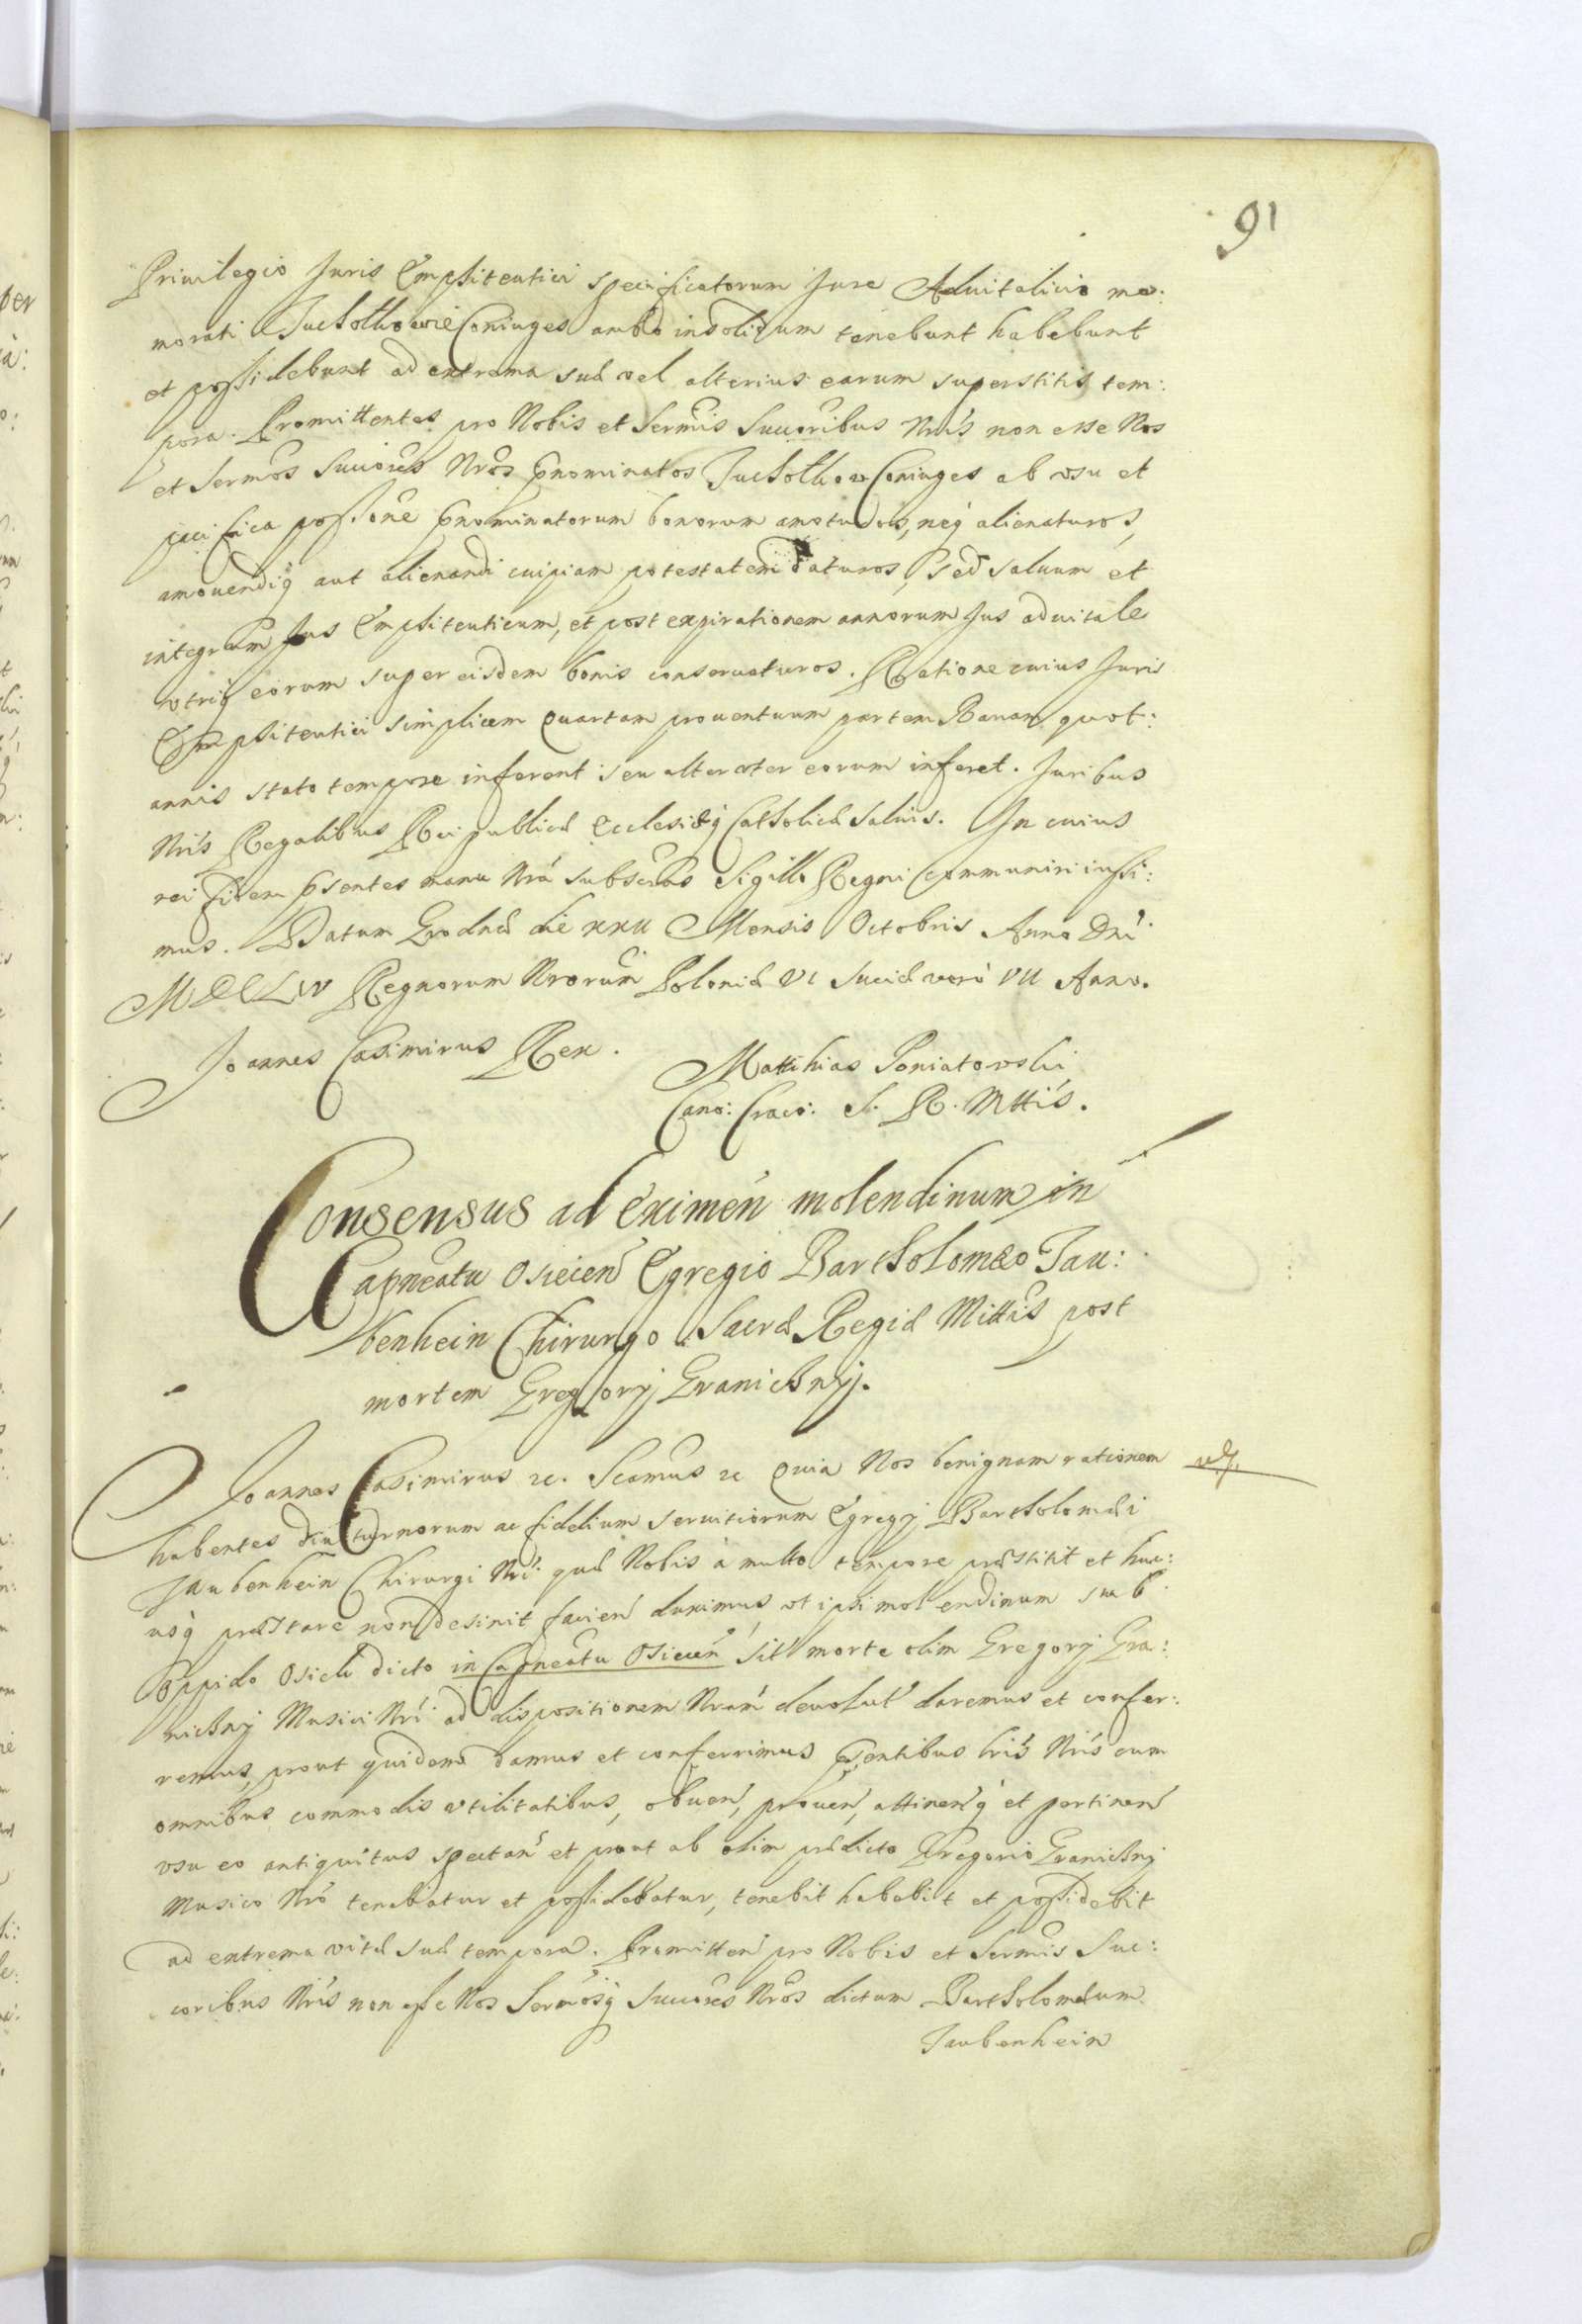 91
Priuilegio Juris Emphiteutici specificatorum Jure Aduitalicio me:
morati Coniuges ambo in solidum tenebunt habebunt
et possidebunt ad extrema suæ vel alterius earum superstitis tem:
pora. Promittentes pro Nobis et Sermis Succoribus Nris non esse Nos
et Sermos Succores Nros Coniuges ab vsu et
pacifica possione bonorum amoturos, neq alienaturos,
amouendiq aut alienandi cuipiam potestatem daturos, sed saluum et
integrum Jus Emphiteuticum, et post expirationem annorum Jus aduitale
vtriq eorum super eisdem bonis conseruaturos. Ratione cuius Juris
Emphiteutici simplicem quartam prouentuum partem Rauam quot:
annis stato tempore inferent seu alteruter eorum inferet. Juribus
Nris Regalibus Reipublicæ Ecclesiæq Catholicæ saluis. In cuius
rei fidem psentes manu Nra subscras Sigillo Regni communiri iussi:
mus. Datum Grodnæ die XXII Mensis Octobris Anno Dni
MDCLIV Regnorum Nrorum Poloniæ VI Sueciæ vero VII Anno.
Joannes Casimirus Rex.
Matthias Poniatowski
Cano: Craco: S. R. Mttis.
Consensus ad eximen molendinum in
Capneatu Osiecen Egregio Bartholomæo Tau:
benhein Chirurgo Sacræ Regiæ Mttis post
mortem Gregorij Granichnij.
Joannes Casimirus &c. Scamus &c Quia Nos benignam rationem
habentes diuturnorum ac fidelium seruitiorum Egregij Bartholomæi
Taubenhein Chirurgi Nri quæ Nobis à multo tempore præstitit et huc:
usq præstare non desinit facien duximus, vt ipsi molendinum sub
oppido Osiek dicto in Capneatu Osiecen sit morte olim Gregorij Gra:
nichnij Musici Nri ad dispositionem Nram deuolut daremus et confer:
remus, prout quidem damus et conferrimus psentibus lris Nris cum
omnibus commodis vtilitatibus, obuen, prouen, attinenq et pertinen
vsu eo antiquitus spectan et prout ab olim prædicto Gregorio Granichnij
Musico Nro tenebatur et possidebatur, tenebit habebit et possidebit
ad extrema vitæ suæ tempora. Promitten pro Nobis et Sermis Suc:
coribus Nris non esse Nos Sermosq Succores Nros dictum Bartholomæum
Taubenhein